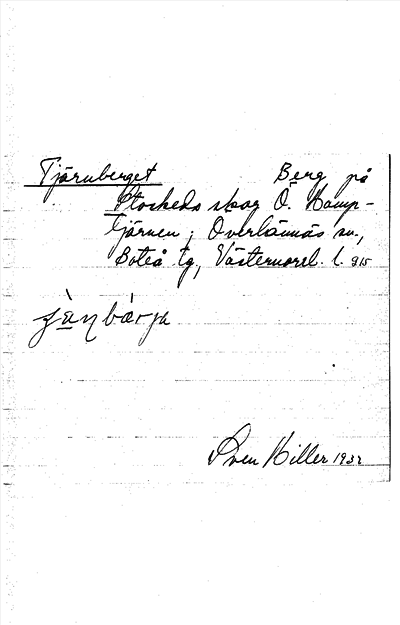 Tjärnberget Berg på
Stockeds skog Ö. Hamp-
tjärnen; Överlännäs sn.,
Boteå tg, Västernorrl. l. 915
Sven Hiller 1932